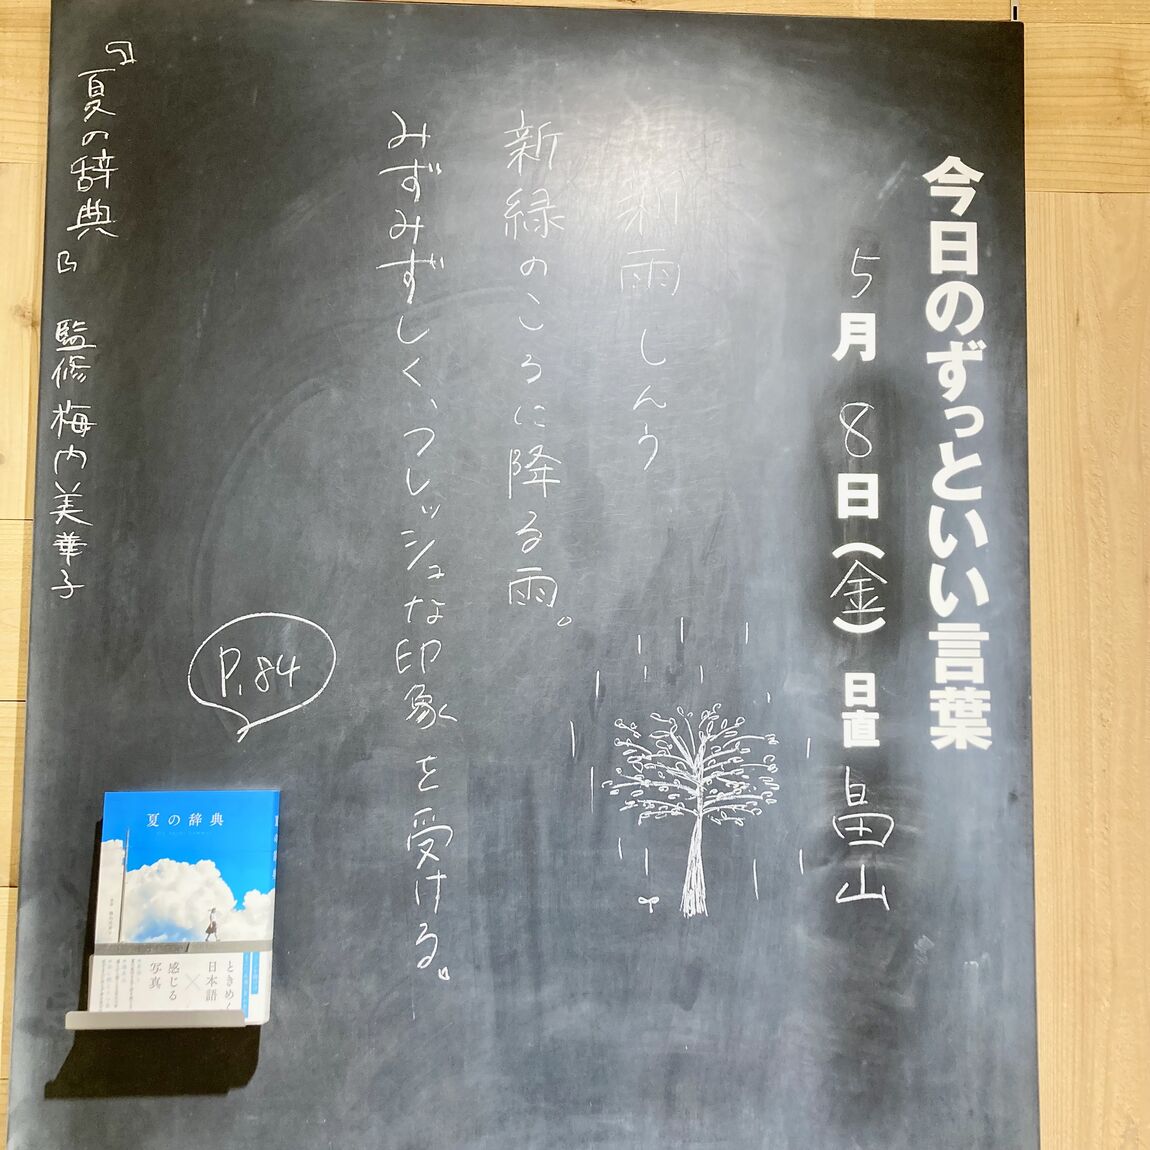 今日のずっといい言葉
5月8日(金)日直 畠山
新雨 しんう
新緑のころに降る雨。
みずみずしく、フレッシュな印象を受ける。
P.84
『夏の辞典』 監修 梅内美華子
夏の辞典
ときめく
日本語
×
感じる
写真